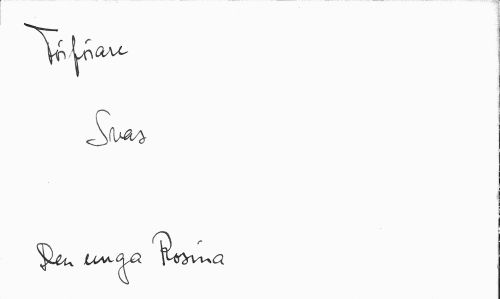 Förförare
Svas
Den unga Rosina